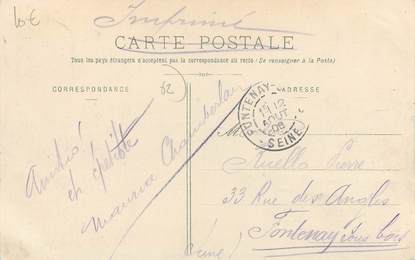 10 €
Imprimé
CARTE POSTALE
Tous les pays étrangers n'acceptent pas la correspondance au recto (Se renseigner à la Poste)
CORRESPONDANCE
52
ADRESSE
FONTENAY
12
AOUT
SEINE
Amitié
en
Maurice Chamberlan
M
33 Rue des Angles
Fontenay sous bois
(Seine)